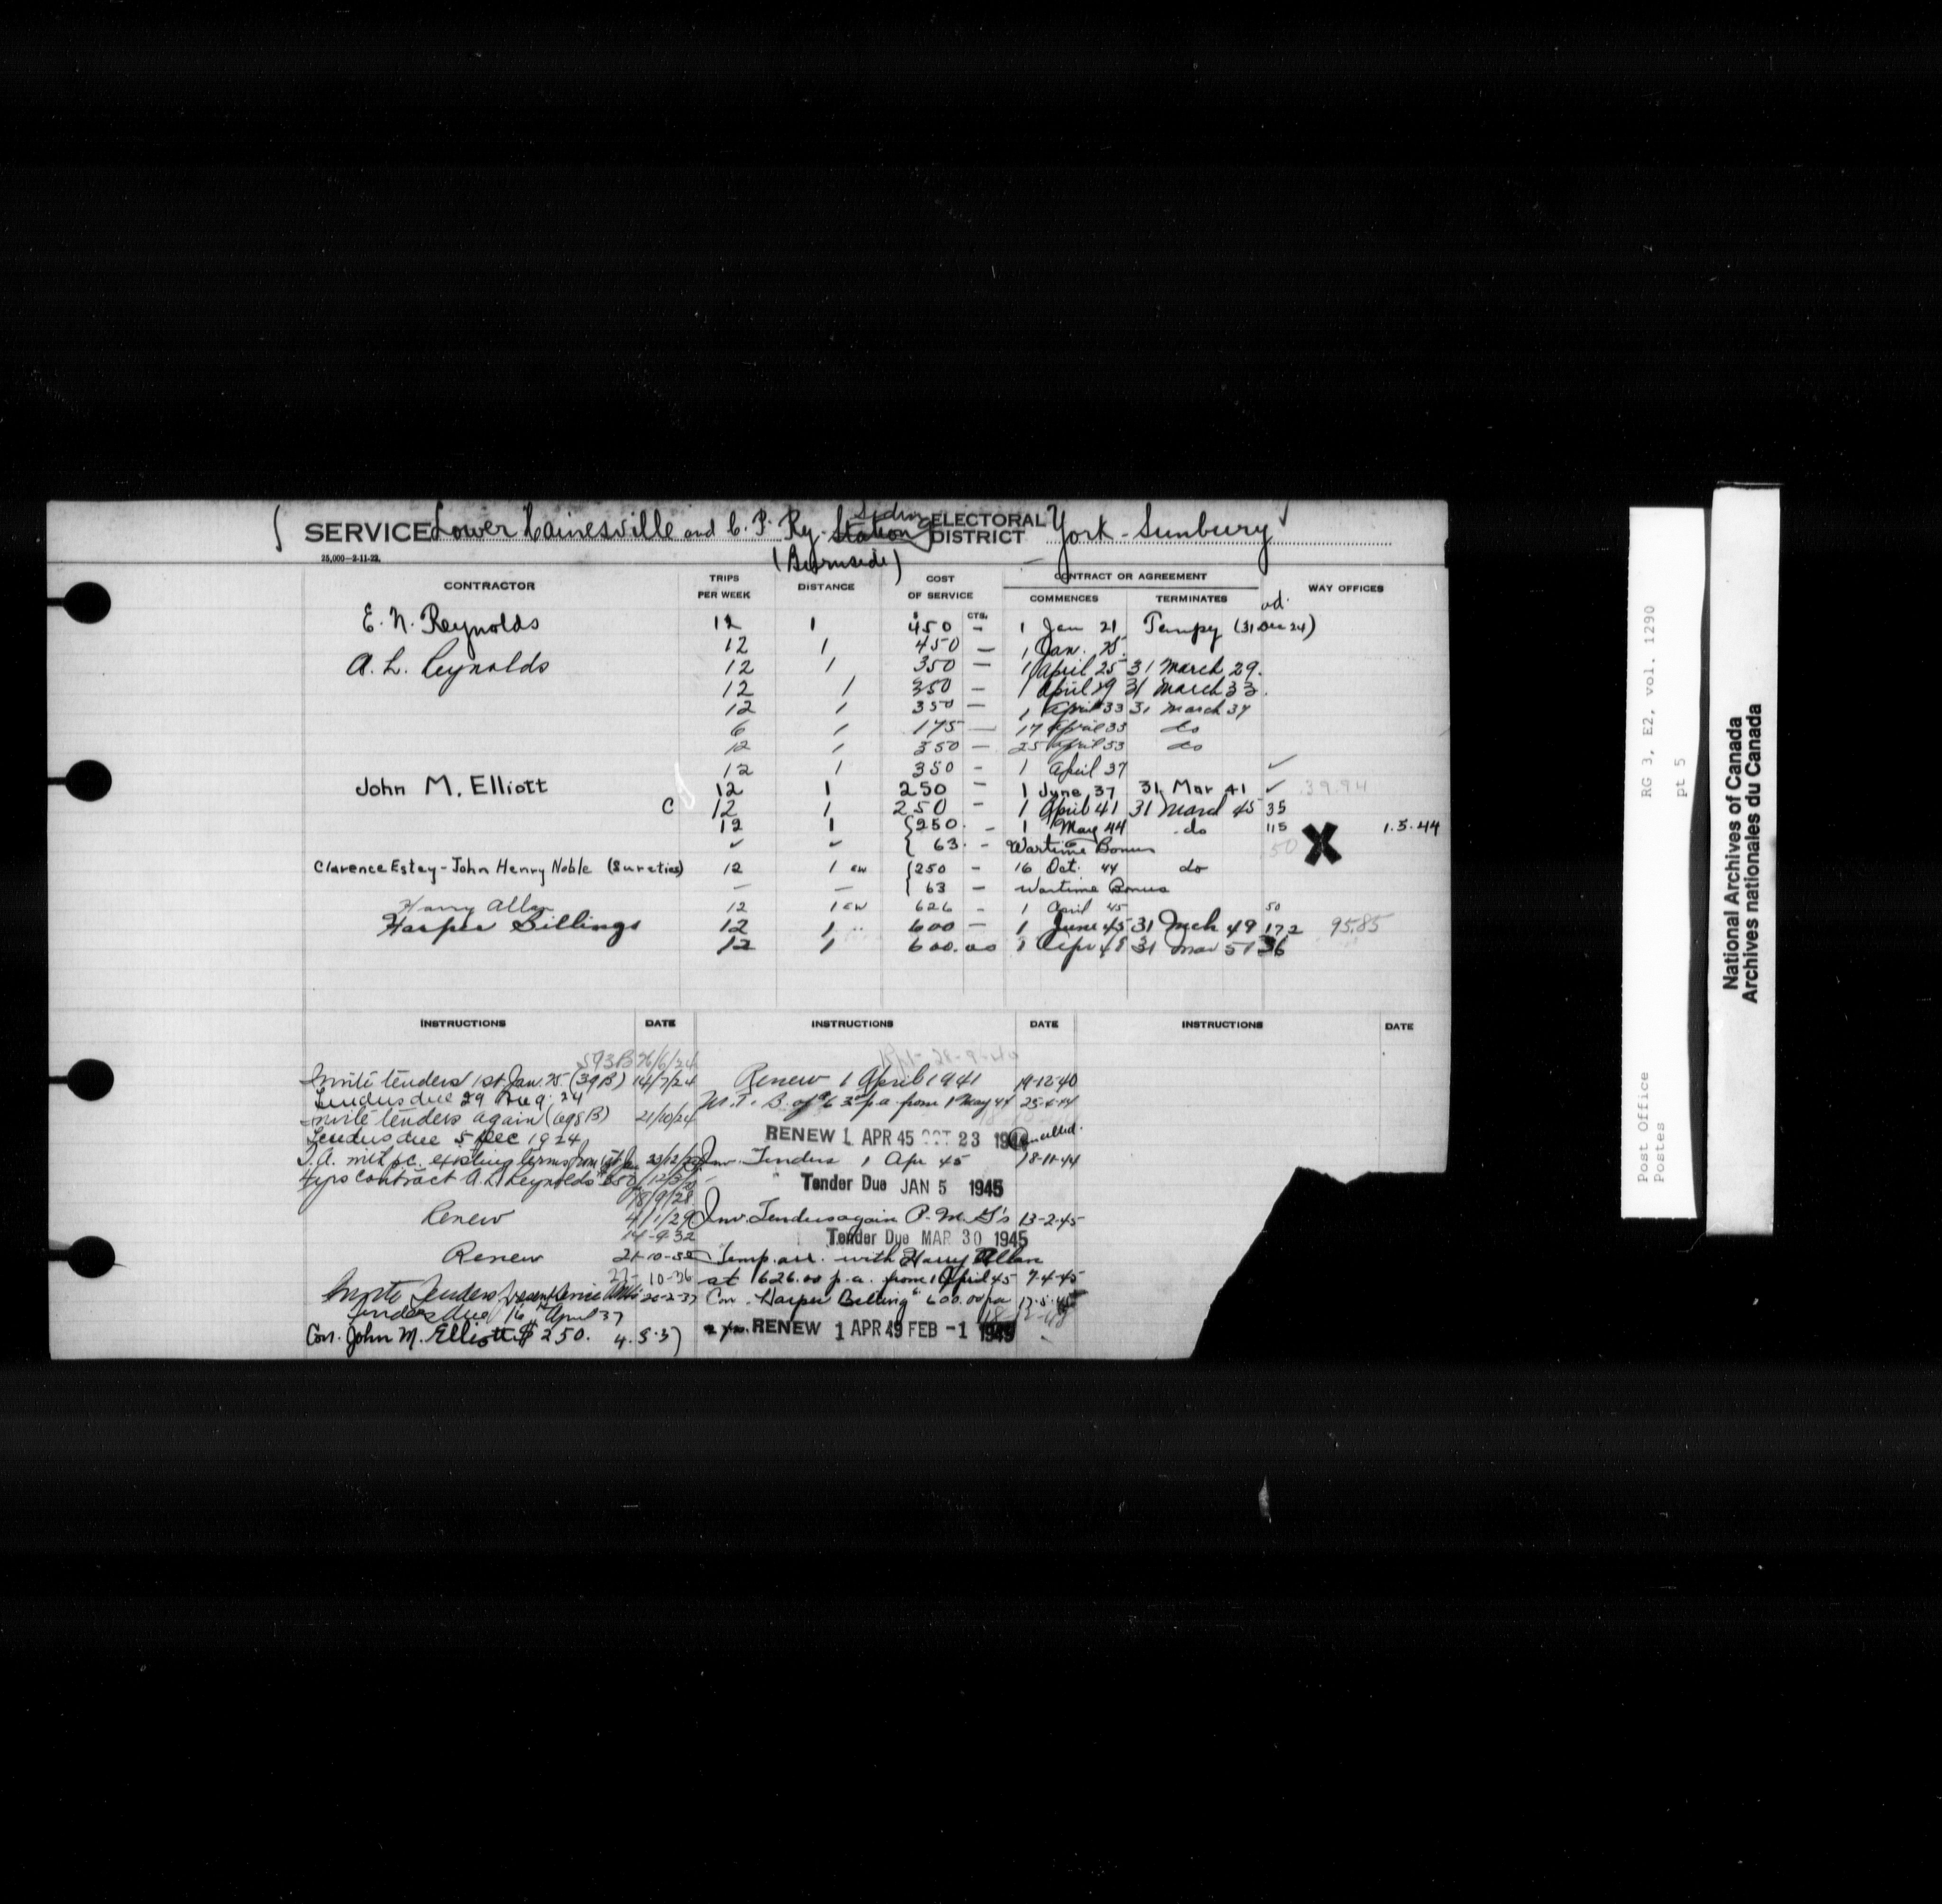 SERVICE Lower Hainesville and C. P. Ry. Station Siding ELECTORAL DISTRICT York - Sunbury
25,000-2-11-22.
(Burnside)
CONTRACTOR TRIPS PER WEEK DISTANCE COST OF SERVICE CONTRACT OR AGREEMENT WAY OFFICES
COMMENCES TERMINATES
$ CTS. ad.
E. N. Reynolds 12 1 450 - 1 Jan 21 Tempy (31 Dec 24)
12 1 450 - 1 Jan. 25.
A. L. Reynolds 12 1 350 - 1 April 25 31 March 29.
12 1 350 - 1 April 29 31 March 33.
12 1 350 - 1 April 33 31 March 37
6 1 175 - 17 April 33 do
12 1 350 - 25 April 33 do
12 1 350 - 1 April 37 ✓
John M. Elliott 12 1 250 - 1 June 37 31 Mar 41 ✓ 39.94
C 12 1 250 - 1 April 41 31 March 45 35
12 1 {250. - 1 May 44 do 115 X 1.5.44
✓ ✓ { 63. - Wartime Bonus 50
Clarence Estey - John Henry Noble (Sureties) 12 1 ew {250 - 16 Oct. 44 do
— — { 63 - Wartime Bonus
Harry Allen 12 1 ew 626 - 1 April 45 50
Harper Billings 12 1 " 600 - 1 June 45 31 Mch 49 172 95.85
12 1 600.00 1 Apr 49 31 Mar 51 36
INSTRUCTIONS DATE INSTRUCTIONS DATE INSTRUCTIONS DATE
593B 26/6/24
Invite tenders 1st Jan. 25 (39B) 14/7/24
Tenders due 29 Aug. 24
Invite tenders again (698B) 21/10/24
Tenders due 5 Dec 1924
T.A. existing terms from 1st Jan
Contract A. L. Reynolds $350
18/9/28
Renew 4/1/29
14-9-32
Renew 21-10-32
22-10-36
Invite Tenders present service 20-2-37
Tenders due 16 April 37
Con. John M. Elliott $250. 4.5.37
28-9-40
Renew 1 April 1941 19-12-40
W. T. B. of $63 p.a. from 1 May 44 25-4-44
RENEW 1 APR 45 OCT 23 1944 Cancelled.
Inv. Tenders 1 Apr 45 18-11-44
Tender Due JAN 5 1945
Inv. Tenders again P. M. G's 13-2-45
Tender Due MAR 30 1945
Temp. arr. with Harry Allen
at 626.00 p.a. from 1 April 45 9-4-45
Con. Harper Billings 600.00 pa 17-5-45
2 yrs. RENEW 1 APR 49 FEB -1 1949
RG 3, E2, vol. 1290
pt 5
Post Office
Postes
National Archives of Canada
Archives nationales du Canada